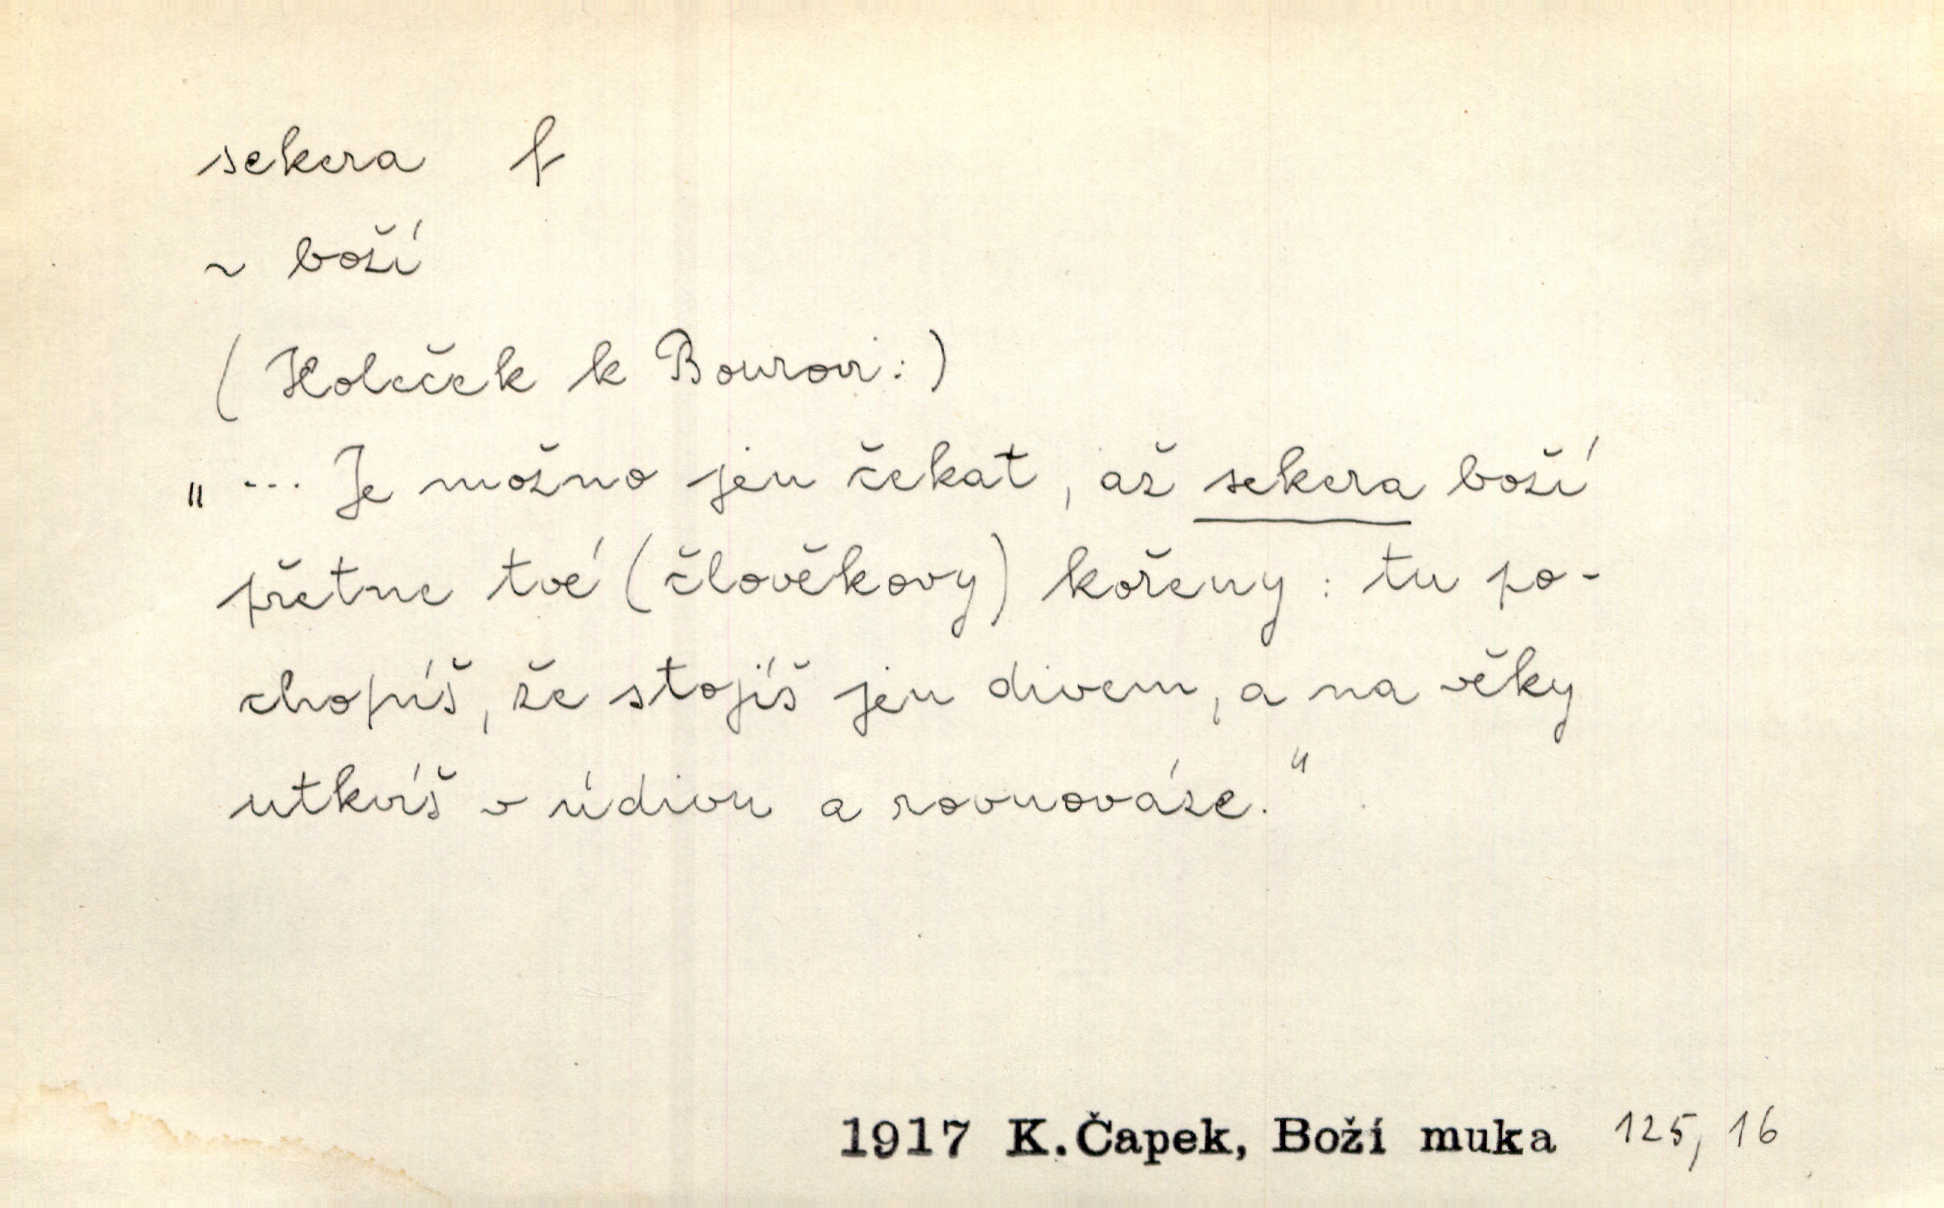 sekera f
~ boží
(Holeček k Bourovi:)
„ ... Je možno jen čekat, až sekera boží
přetne tvé (člověkovy) kořeny: tu po-
chopíš, že stojíš jen divem, a na věky
utkvíš v údivu a rovnováze."
1917 K.Čapek, Boží muka 125, 16